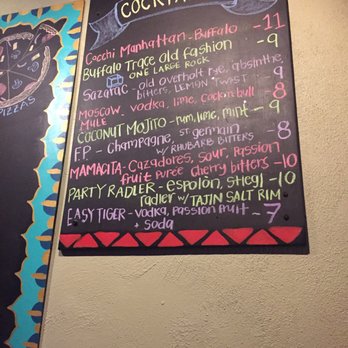 COCKTA
Cocchi Manhattan-Buffalo -11
Buffalo Trace old fashion -9
ONE LARGE ROCK
Sazarac - old overholt rye, absinthe, -9
bitters, LEMON TWIST
MOSCOW - vodka, lime, cock n bull - 8
MULE
COCONUT MOJITO - rum, lime, mint - 9
F.P - Champagne, st germain - 8
w/ RHUBARB BITTERS
MAMACITA - Cazadores, sour, Passion
fruit puree Cherry bitters -10
PARTY RADLER - espolòn, stiegl -10
radler w/ TAJIN SALT RIM
EASY TIGER - vodka, passion fruit - 7
+ soda
PIZZAS